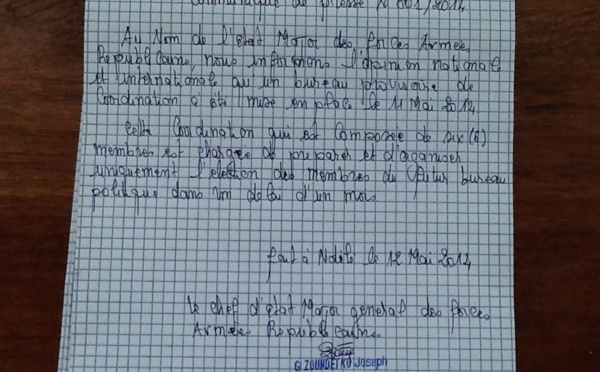 Communiqué de presse N°001/2014
Au Nom de l'état Major des forces Armée
Republicaine, nous informons l'opinion nationale
et internationale qu'un bureau provisoire de
Coordination a été mise en place le 11 Mai 2014
Cette Coordination qui est Composée de six (6)
membres est chargée de préparer et d'organiser
uniquement l'election des membres du futur bureau
politique dans un delai d'un mois
fait à Ndélé le 12 Mai 2014
le chef d'état Major general des forces
Armée Republicaine
G ZOUNDEYKO Joseph